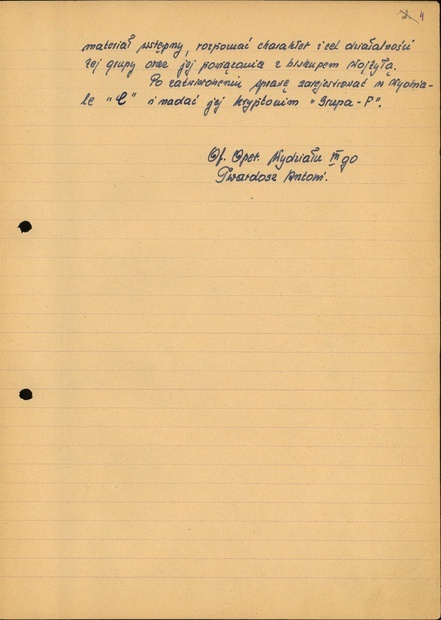 4
materiał wstępny, rozpoznać charakter i cel działalności
tej grupy oraz jej powiązania z biskupem Wojtyłą.
Po zatwierdzeniu sprawę zarejestrować w Wydzia-
le "C" i nadać jej kryptonim "Grupa-P".
Of. Oper. Wydziału III go
Twardosz Antoni